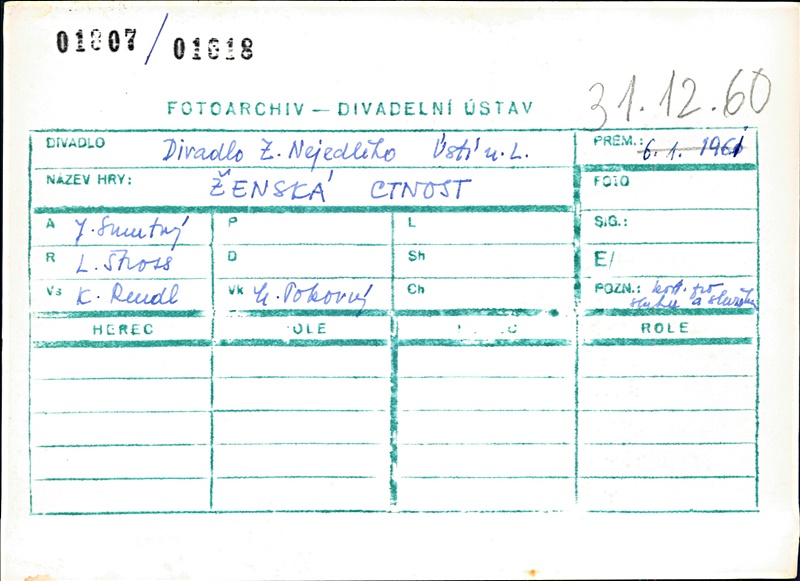 01807/01818
31.12.60
FOTOARCHIV — DIVADELNÍ ÚSTAV
DIVADLO Divadlo Z. Nejedlého Ústí n. L. PREM.: 6. 1. 1961
NÁZEV HRY: ŽENSKÁ CTNOST FOTO
A J. Smutný P L SIG.:
R L. Stross D Sh E/
Vs K. Rendl Vk Pokorný Ch POZN.: kost. pro
sluhu a
HEREC OLE C ROLE